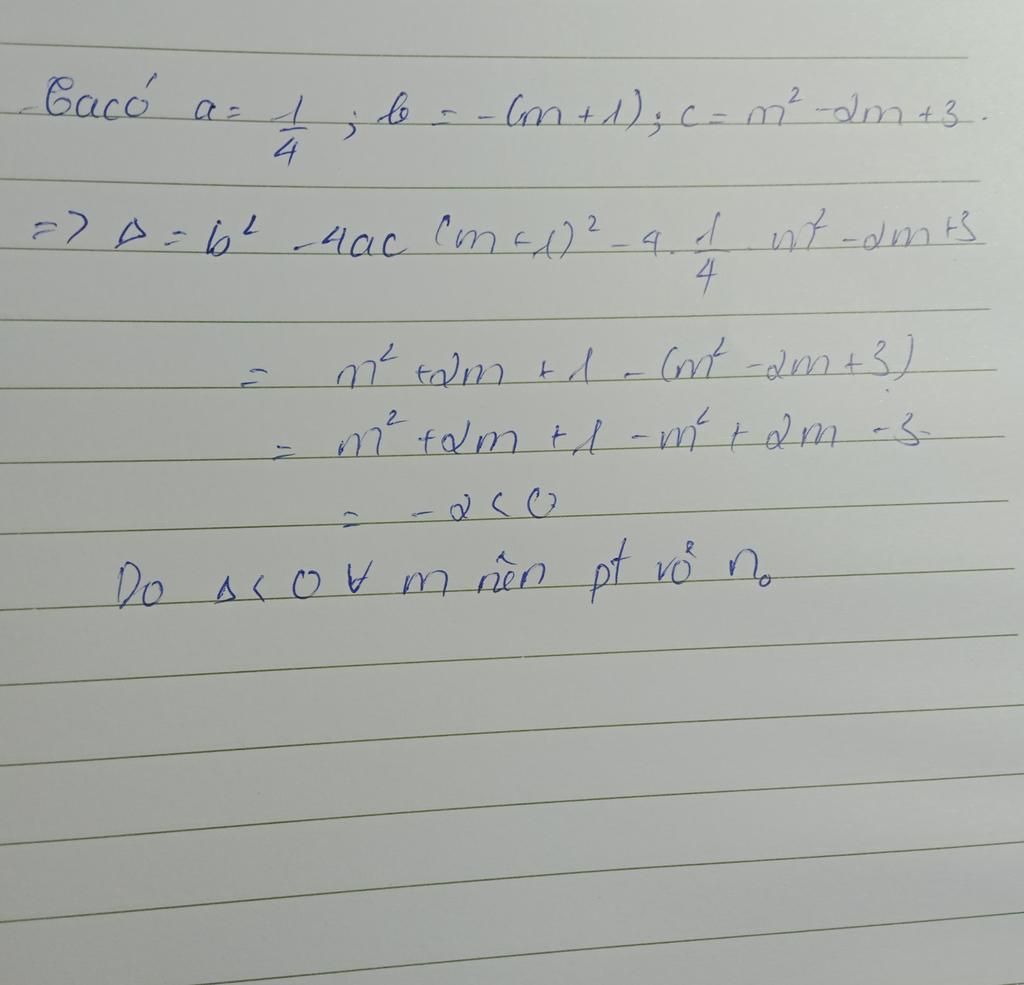 Ta có a = 1/4 ; b = -(m+1); c = m² -2m+3.
=> Δ = b² -4ac (m+1)² - 4. 1/4 m² -2m+3
= m² +2m +1 - (m² -2m+3)
= m² +2m +1 -m² + 2m -3
= -2 < 0
Do Δ < 0 ∀ m nên pt vô n₀